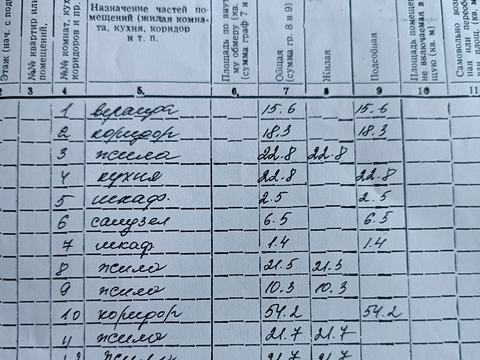 Этаж (нач. с подв
№№ квартир или
помещений,
№№ комнат, кух
коридоров и пр.
Назначение частей по-
мещений (жилая комна-
та, кухня, коридор
и т. п.
Площадь по внут
му обмеру (кв.
(сумма граф 7 и
Общая
(сумма гр. 8 и 9)
Жилая
Подсобная
Площадь помещен
не включаемая в
щую (кв. м)
Самовольно возв
ная или переобо
ная площ. (кв. м
2 3 4 5. 6. 7 8 9 10 11
1 веранда 15.6 15.6
2 коридор 18.3 18.3
3 жила 22.8 22.8
4 кухня 22.8 22.8
5 шкаф. 2.5 2.5
6 санузел 6.5 6.5
7 шкаф 1.4 1.4
8 жило 21.5 21.3
9 жило 10.3 10.3
10 коридор 54.2 54.2
11 жило 21.7 21.7
21.7 21.7